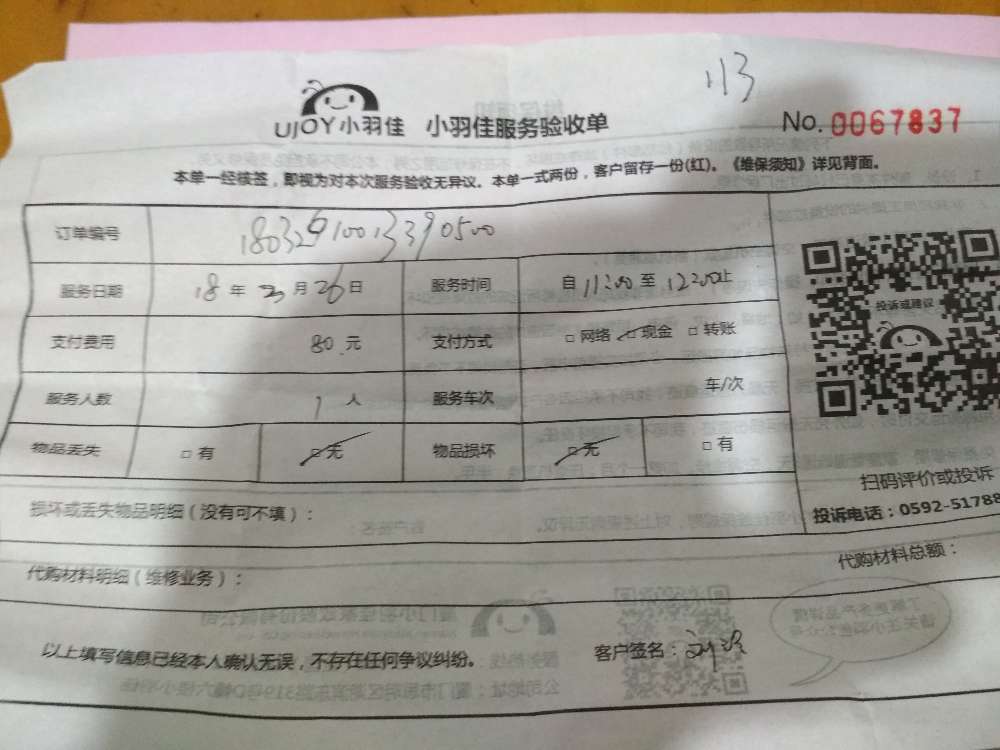 113
UJOY小羽佳 小羽佳服务验收单 No. 0067837
本单一经核签，即视为对本次服务验收无异议。本单一式两份，客户留存一份(红)。《维保须知》详见背面。
订单编号 180329100133390500
服务日期 18 年 3 月 26 日 服务时间 自 11:00 至 12:00止
投诉或建议
支付费用 80.元 支付方式 □ 网络 □ 现金 □ 转账
服务人数 1 人 服务车次 车/次
物品丢失 □ 有 □ 无 物品损坏 □ 无 □ 有
扫码评价或投诉
损坏或丢失物品明细（没有可不填）： 投诉电话：0592-51788
代购材料明细（维修业务）： 代购材料总额：
以上填写信息已经本人确认无误，不存在任何争议纠纷。 客户签名：